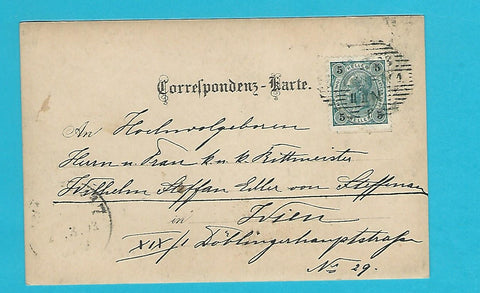 Correspondenz-Karte.
5 5
5 5
An Hochwolgeboren
Herrn u. Frau k. u. k. Rittmeister
Wilhelm Steffan Edler von Steffenau
in Wien
XIX/1 Döblingerhauptstraße
No 29.